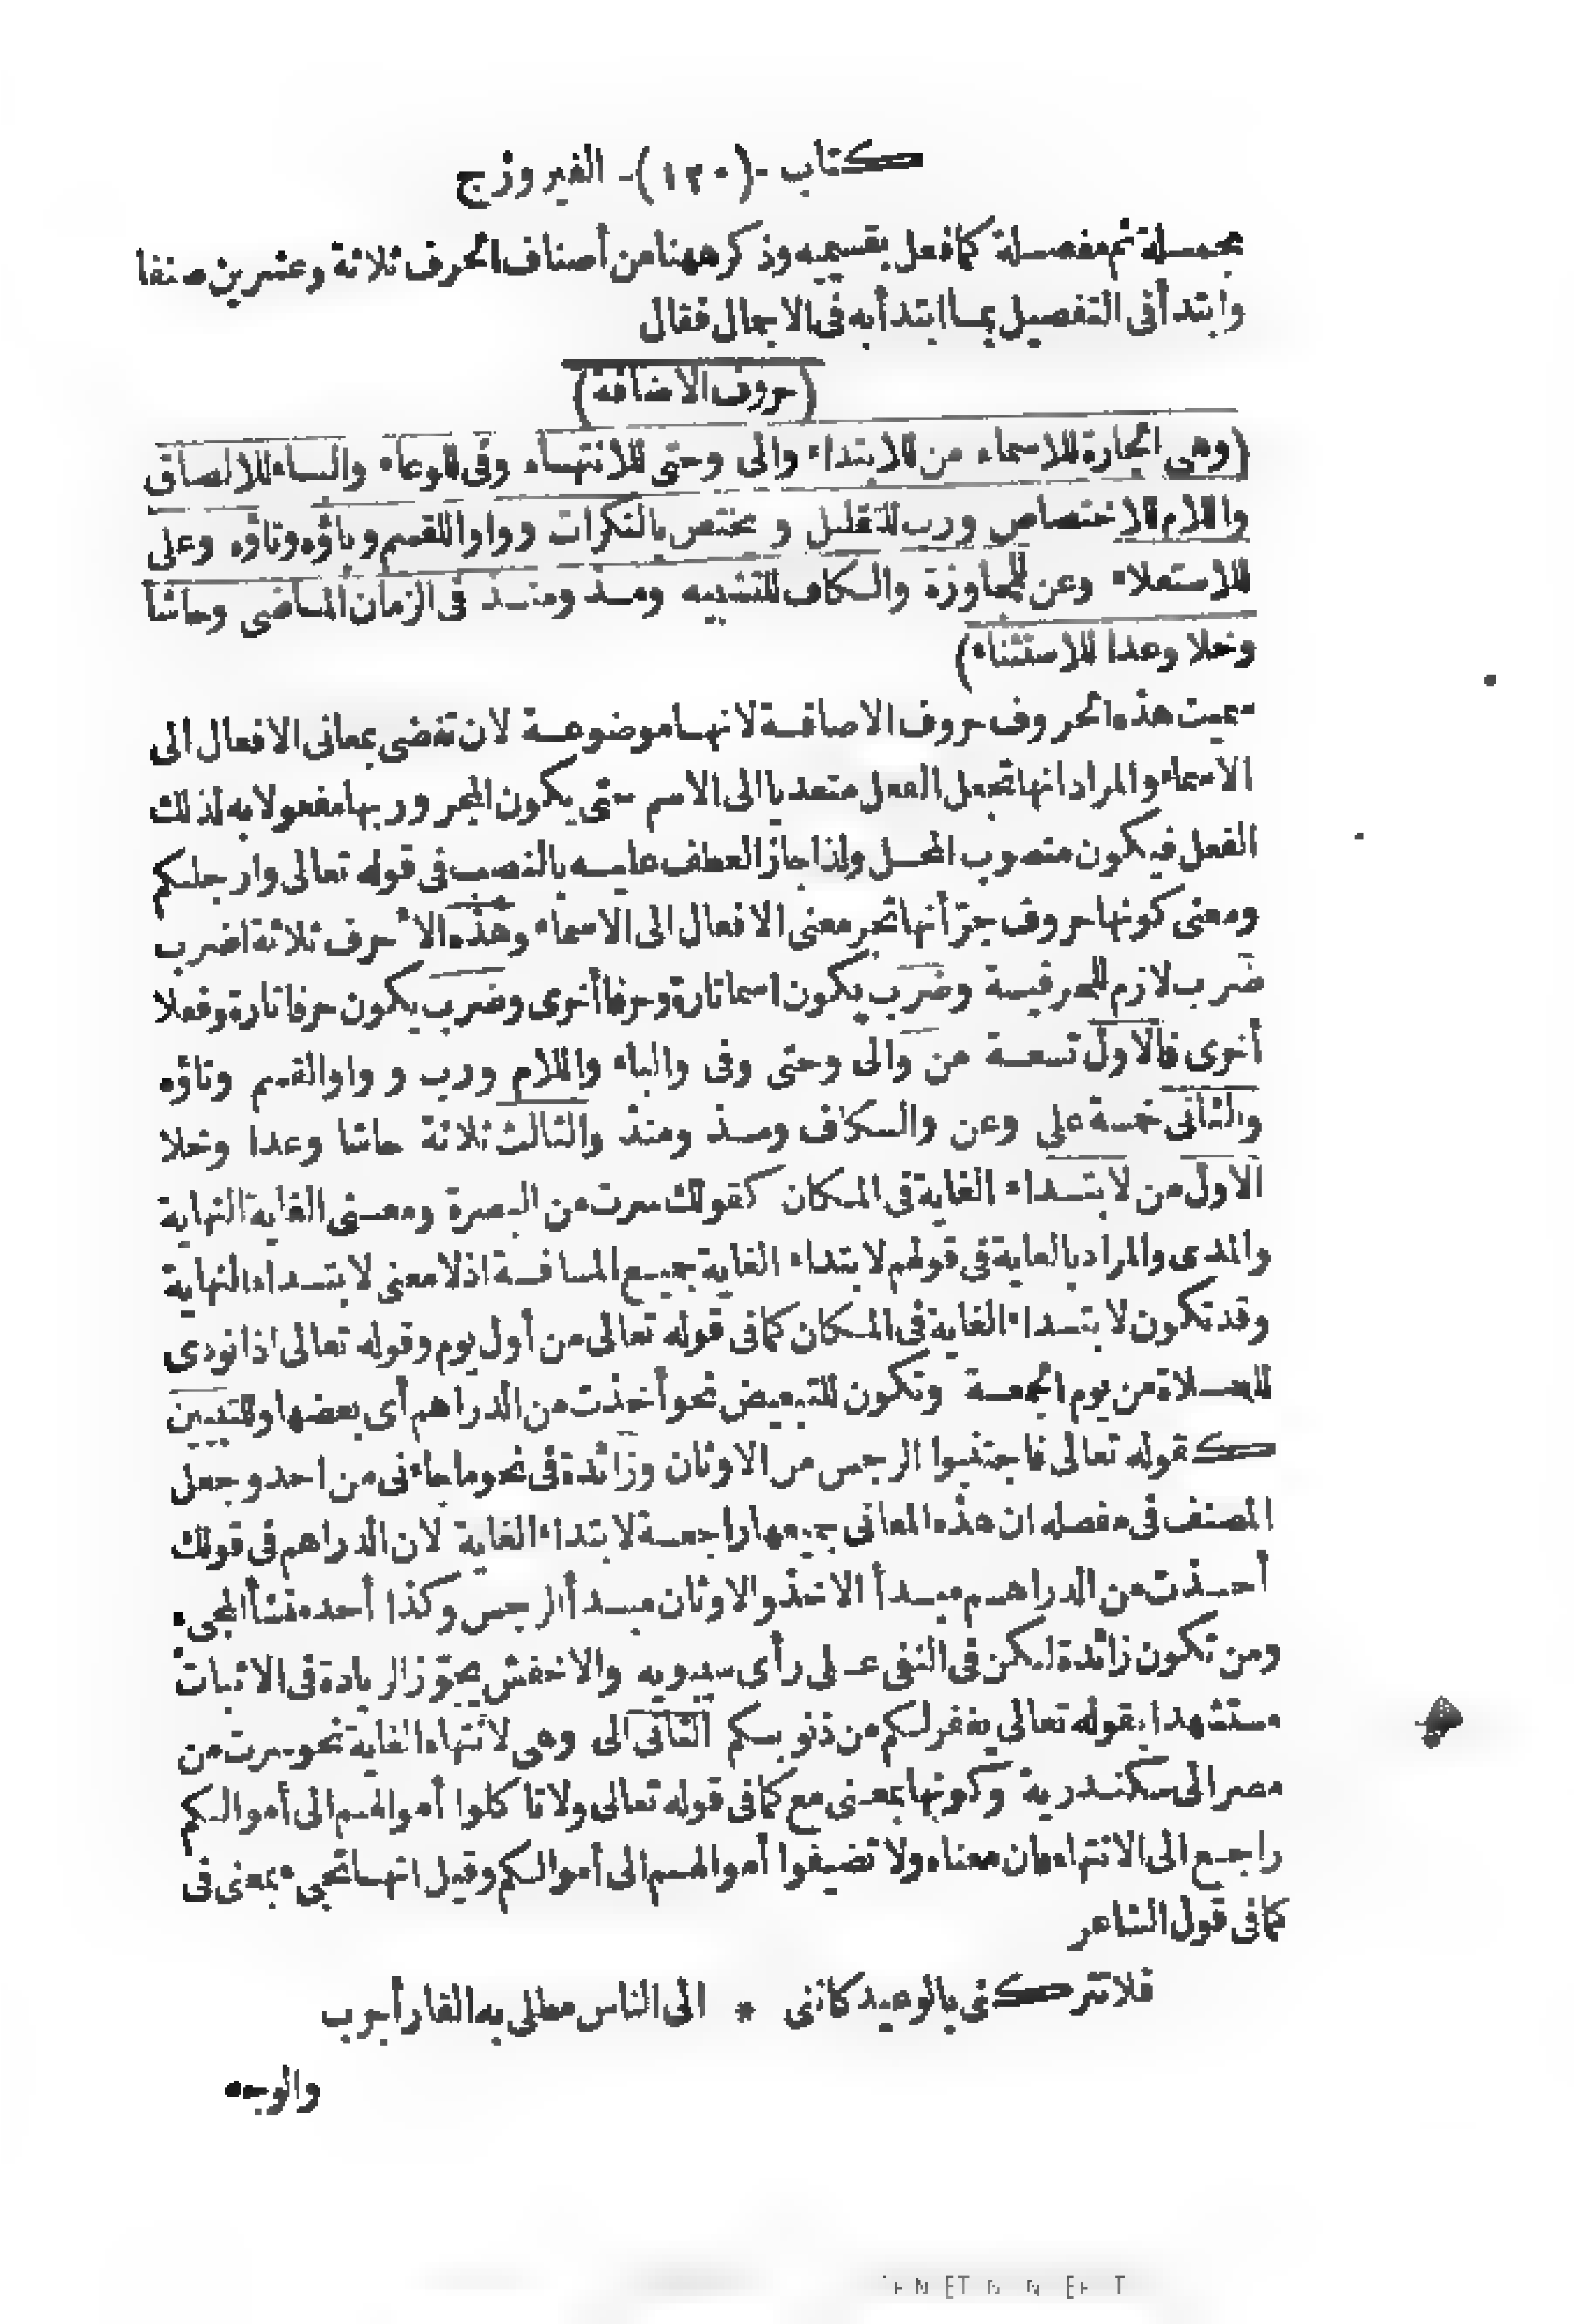 كتاب -(١٣٠)- الفيروزج
مجملة ثم مفصلة كما فعل بقسيميه وذكر ههنا من أصناف الحرف ثلاثة وعشرين صنفا
وابتدأ فى التفصيل بما ابتدأ به فى الاجمال فقال
(حروف الاضافة)
(وهى الجارة للاسماء من للابتداء والى وحتى للانتهاء وفى للوعاء والباء للالصاق
واللام للاختصاص ورب للتقليل و مختص بالنكرات وواو للقسم وباؤه وتاؤه وعلى
للاستعلاء وعن للمجاوزة والكاف للتشبيه ومذ ومنذ فى الزمان الماضى وحاشا
وخلا وعدا للاستثناء)
سميت هذه الحروف حروف الاضافة لانها موضوعة لان تفضى بمعانى الافعال الى
الاسماء والمراد انها تجعل الفعل متعديا الى الاسم حتى يكون المجرور بها مفعولا به لذلك
الفعل فيكون منصوب المحل ولذا جاز العطف عليه بالنصب فى قوله تعالى وارجلكم
ومعنى كونها حروف جرّ أنها تجر معنى الافعال الى الاسماء وهذه الاحرف ثلاثة اضرب
ضرب لازم للحرفية وضرب يكون اسما تارة وحرفا أخرى وضرب يكون حرفا تارة وفعلا
أخرى فالاول تسعة من والى وحتى وفى والباء واللام ورب و واو القسم وتاؤه
والثانى خمسة على وعن والكاف ومذ ومنذ والثالث ثلاثة حاشا وعدا وخلا
الاول من لابتداء الغاية فى المكان كقولك سرت من البصرة ومعنى الغاية النهاية
والمدى والمراد بالغاية فى قولهم لابتداء الغاية جميع المسافة اذ لا معنى لابتداء النهاية
وقد تكون لابتداء الغاية فى المكان كما فى قوله تعالى من أول يوم وقوله تعالى اذا نودى
للصلاة من يوم الجمعة وتكون للتبعيض نحو أخذت من الدراهم أى بعضها وللتبيين
كقوله تعالى فاجتنبوا الرجس من الاوثان وزائدة فى نحو ما جاءنى من احد وجعل
المصنف فى مفصله ان هذه المعانى جميعها راجعة لابتداء الغاية لان الدراهم فى قولك
أخذت من الدراهم مبدأ الاخذ والاوثان مبدأ الرجس وكذا أحد منشأ المجىء
ومن تكون زائدة لكن فى النفى على رأى سيبويه والاخفش يجوّز الزيادة فى الاثبات
مستشهدا بقوله تعالى يغفر لكم من ذنوبكم الثانى الى وهى لانتهاء الغاية نحو سرت من
مصر الى سكندرية وكونها بمعنى مع كما فى قوله تعالى ولا تاكلوا أموالهم الى أموالكم
راجع الى الانتهاء بان معناه ولا تضيفوا أموالهم الى أموالكم وقيل انها تجىء بمعنى فى
كما فى قول الشاعر
فلا تتركنى بالوعيد كاننى * الى الناس مطلى به القار أجرب
والوجه